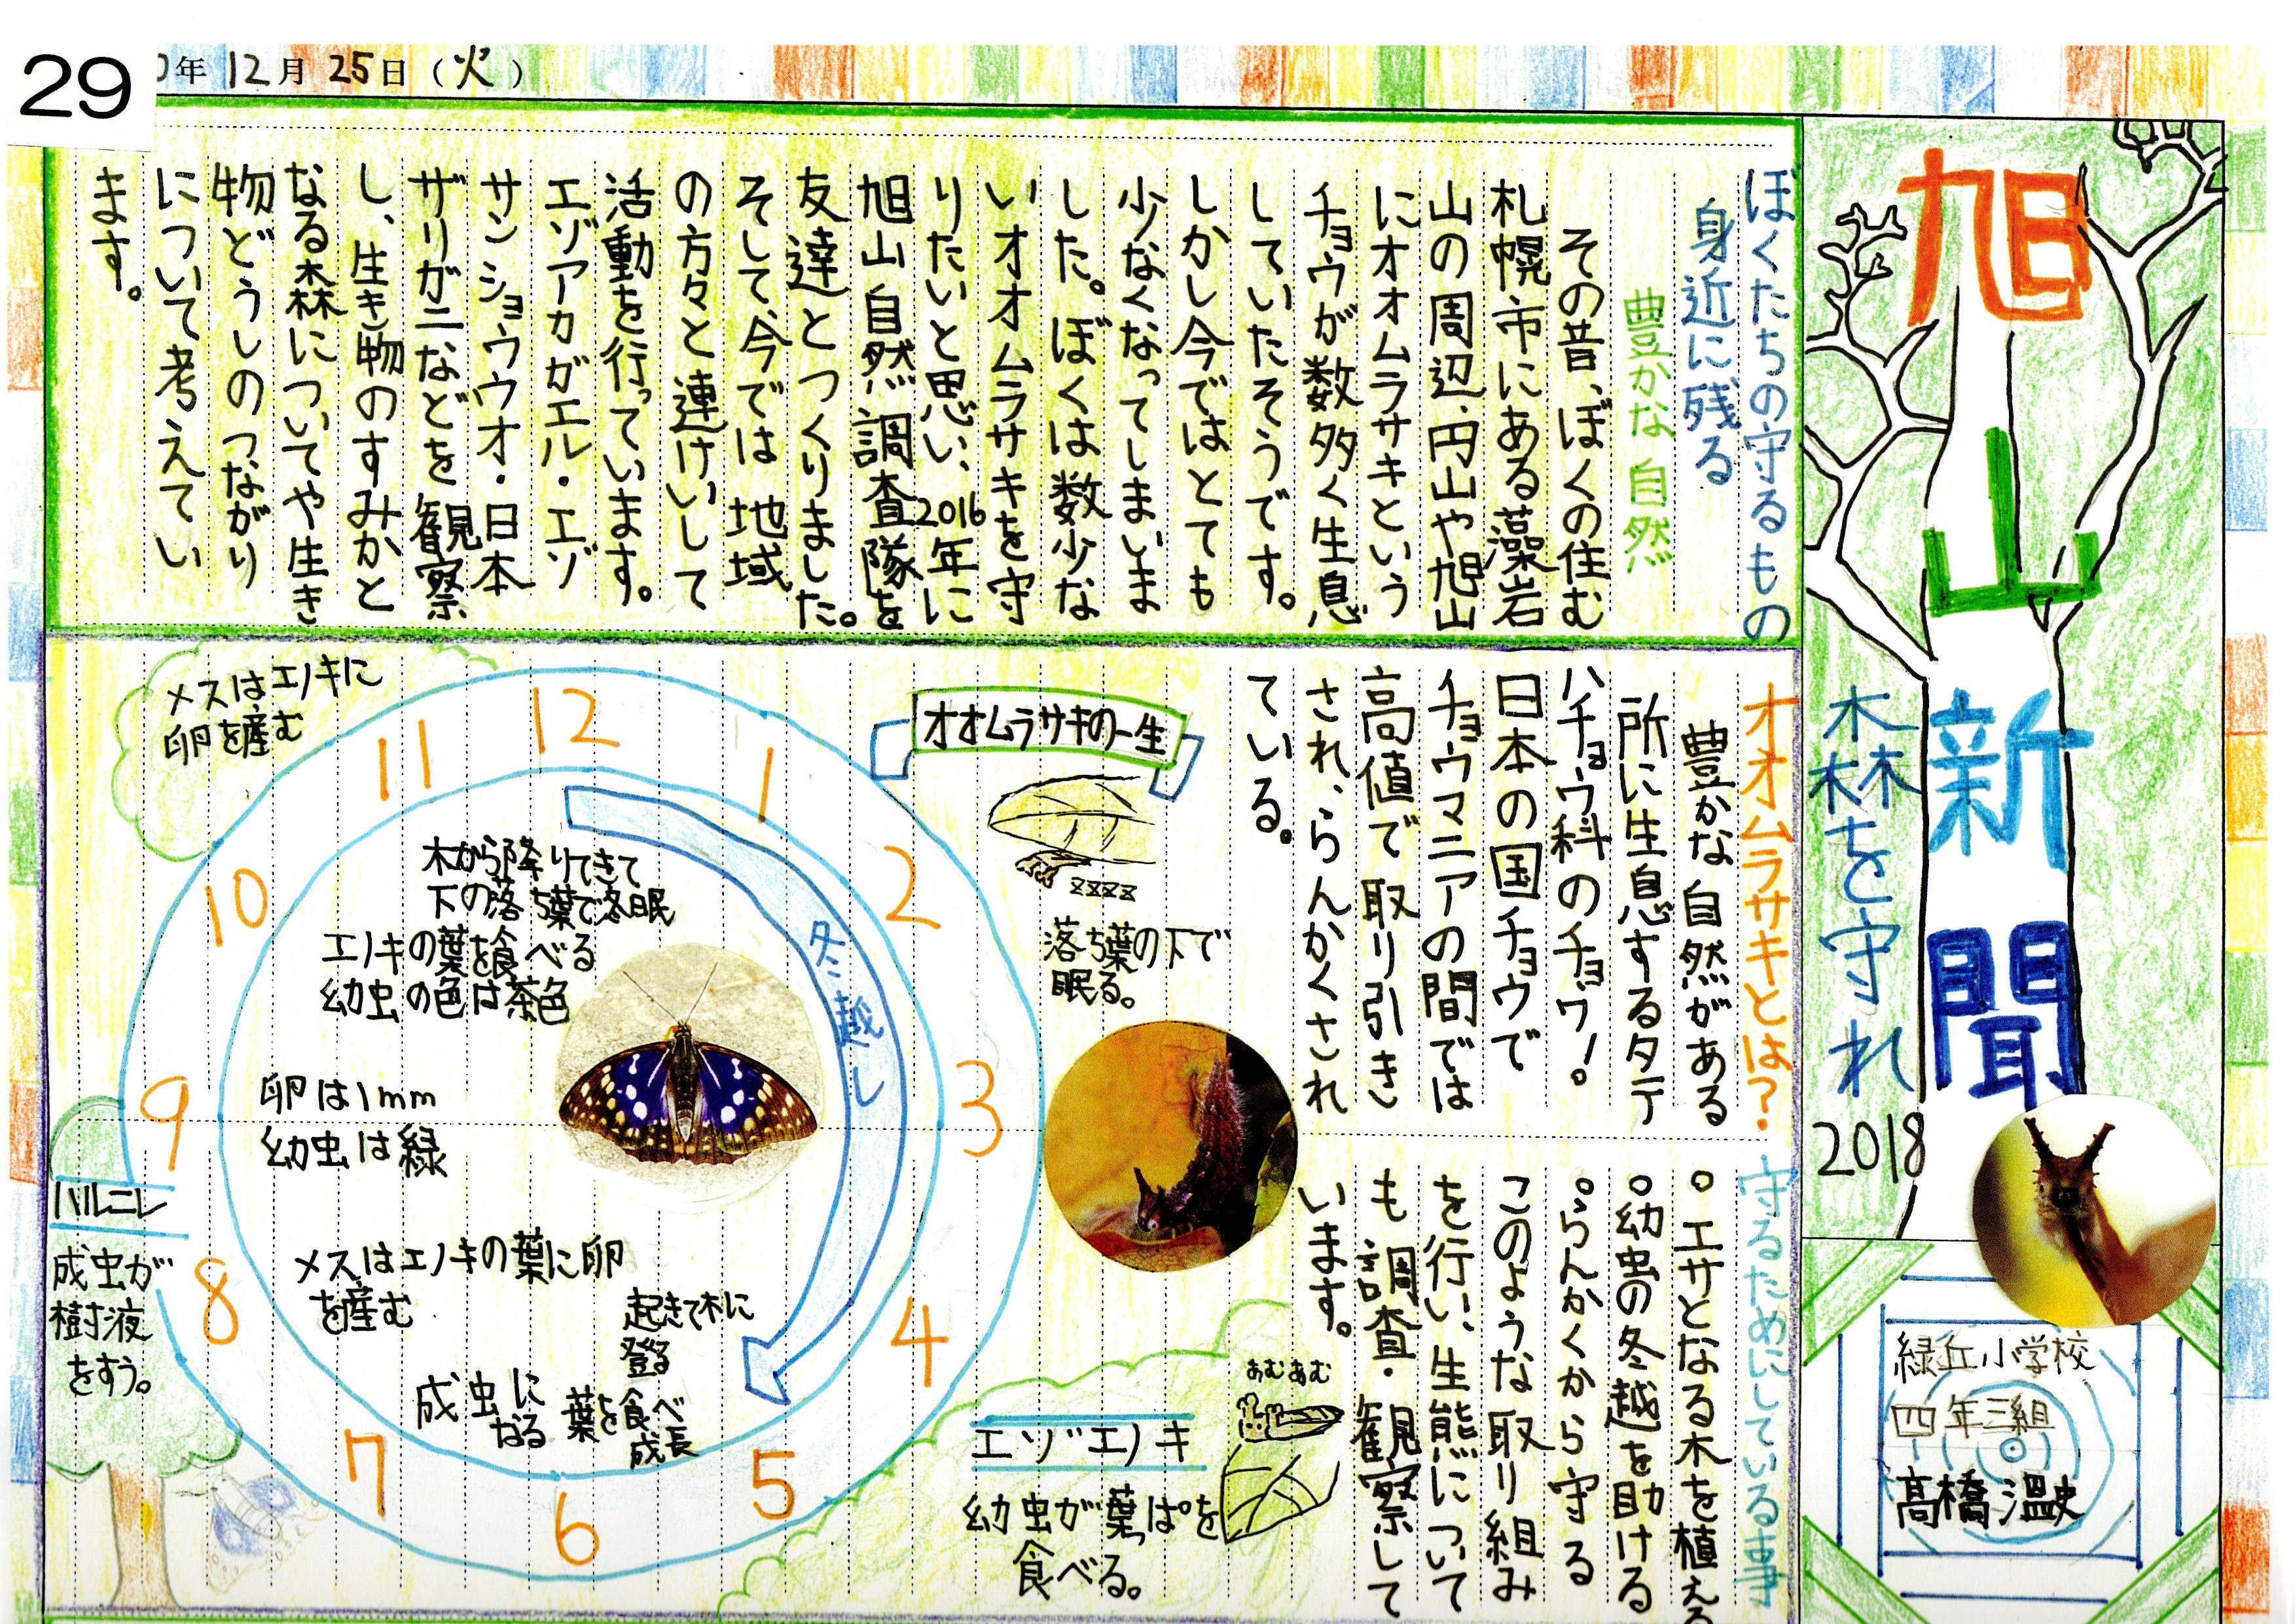 29
年12月25日（火）
旭山新聞
森を守れ
2018
緑丘小学校
四年三組
髙橋温史
ぼくたちの守るもの
身近に残る
豊かな自然
その昔、ぼくの住む
札幌市にある藻岩
山の周辺、円山や旭山
にオオムラサキという
チョウが数多く生息
していたそうです。
しかし今ではとても
少なくなってしまいま
した。ぼくは数少な
いオオムラサキを守
りたいと思い、2016年に
旭山自然調査隊を
友達とつくりました。
そして、今では地域
の方々と連けいして
活動を行っています。
エゾアカガエル・エゾ
サンショウウオ・日本
ザリガニなどを観察
し、生き物のすみかと
なる森についてや生き
物どうしのつながり
について考えてい
ます。
オオムラサキとは？
豊かな自然がある
所に生息するタテ
ハチョウ科のチョウ！。
日本の国チョウで
チョウマニアの間では
高値で取り引き
され、らんかくされ
ている。
守るためにしている事
。エサとなる木を植える
。幼虫の冬越を助ける
。らんかくから守る
このような取り組み
を行い、生熊について
も調査・観察して
います。
オオムラサキの一生
zzzz
落ち葉の下で
眠る。
12
1
2
3
4
5
6
7
8
9
10
11
冬越し
木から降りてきて
下の落ち葉で冬眠
エノキの葉を食べる
幼虫の色は茶色
卵は1mm
幼虫は緑
メスはエノキの葉に卵
を産む
起きて木に
登る
葉を食べ
成長
成虫に
なる
メスはエノキに
卵を産む
ハルニレ
成虫が
樹液
をすう。
あむあむ
エゾエノキ
幼虫が葉っぱを
食べる。